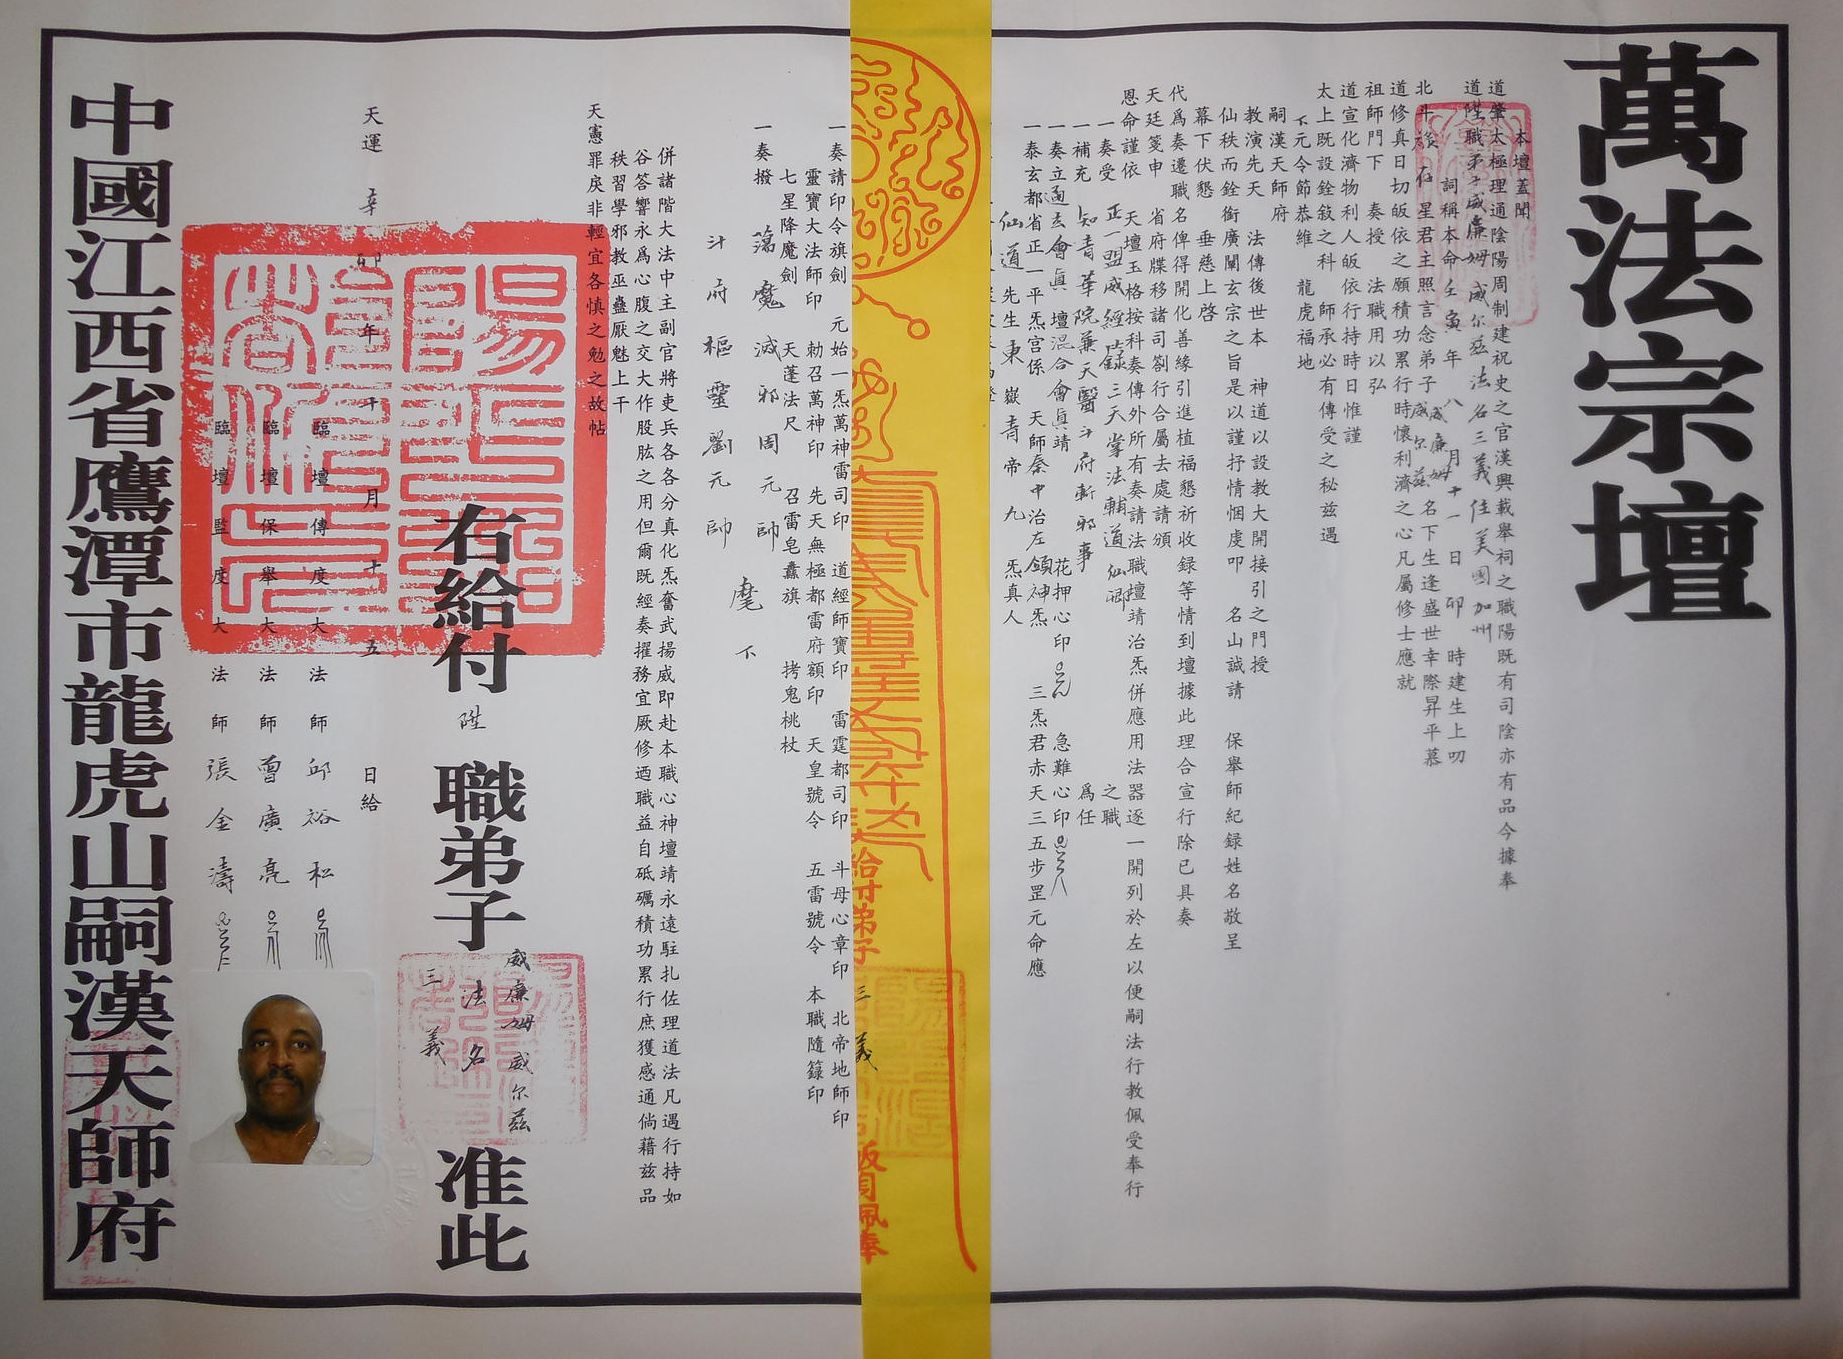 萬法宗壇
本壇蓋聞
道肇太極理通陰陽周制建祝史之官漢興載舉祠之職陽既有司陰亦有品今據奉
道陞職弟子威廉姆威尔兹法名三義住美國加州
詞稱本命壬寅年八月十一日卯時建生上叨
北斗 星君主照言念弟子威廉姆威尔兹名下生逢盛世幸際昇平慕
道修真日切皈依之願積功累行時懷利濟之心凡屬修士應就
祖師門下 奏授 法職用以弘
道宣化濟物利人皈依行持時日惟謹
太上既設銓敍之科 師承必有傳受之秘兹遇
下元令節恭維 龍虎福地
嗣漢天師府
教演先天 法傳後世本 神道以設教大開接引之門授
仙秩而銓銜廣闡玄宗之旨是以謹抒情悃虔叩 名山誠請 保舉師紀録姓名敬呈
幕下伏懇 垂慈上啓
代爲奏遷職名俾得開化善緣引進植福懇祈收録等情到壇據此理合宣行除已具奏
天廷箋申 省府牒移諸司劄行合屬去處請頒
恩命謹依 天壇玉格按科奏傳外所有奏請法職壇靖治炁併應用法器逐一開列於左以便嗣法行教佩受奉行
一奏受 正一盟威經籙三天掌法輔道仙卿 之職
一補充 知青華院兼天醫斗府斬邪事 爲任
一奏立 會眞 壇混合會眞靖 花押心印 急難心印
一泰玄都省正一平炁宮係 天師秦中治左領神炁 三炁君赤天三五步罡元命應
仙道 先生東嶽青帝九 炁真人
給付弟子
三義
佩奉
一奏請印令旗劍 元始一炁萬神雷司印 道經師寶印 雷霆都司印 斗母心章印 北帝地師印
靈寶大法師印 勅召萬神印 先天無極都雷府額印 天皇號令 五雷號令 本職隨籙印
七星降魔劍 天蓬法尺 召雷皂纛旗 拷鬼桃杖
一奏撥 蕩魔滅邪周元帥 麾下
斗府樞靈劉元帥
併諸階大法中主副官將吏兵各各分真化炁奮武揚威即赴本職心神壇靖永遠駐扎佐理道法凡遇行持如
谷答響永爲心腹之交大作股肱之用但爾既經奏擢務宜厥修迺職益自砥礪積功累行庶獲感通倘藉兹品
秩習學邪教巫蠱厭魅上干
天憲罪戾非輕宜各慎之勉之故帖
右給付陞職弟子威廉姆威尔兹法名三義准此
天運辛卯年十月十五日給
臨壇傳度大法師邱裕松
臨壇保舉大法師曾廣亮
臨壇監度大法師張金濤
中國江西省鷹潭市龍虎山嗣漢天師府